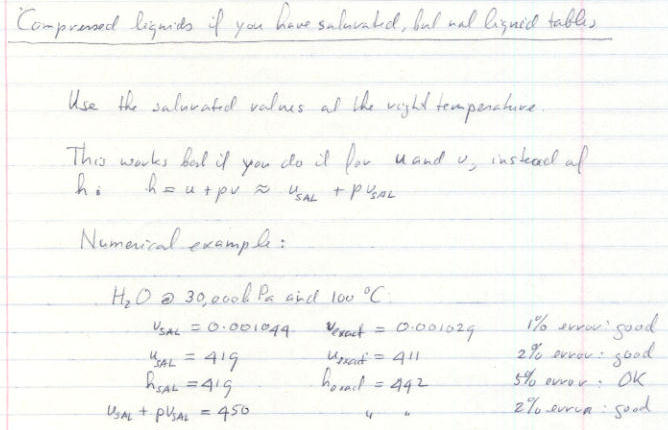 Compressed liquids if you have saturated, but not liquid tables
Use the saturated values at the right temperature.
This works best if you do it for u and v, instead of
h: h = u + pv ≈ u_SAT + p v_SAT
Numerical example:
H₂O @ 30,000 kPa and 100 °C:
v_SAT = 0.001044 v_exact = 0.001029 1% error: good
u_SAT = 419 u_exact = 411 2% error: good
h_SAT = 419 h_exact = 442 5% error: OK
u_SAT + p v_SAT = 450 " " 2% error: good